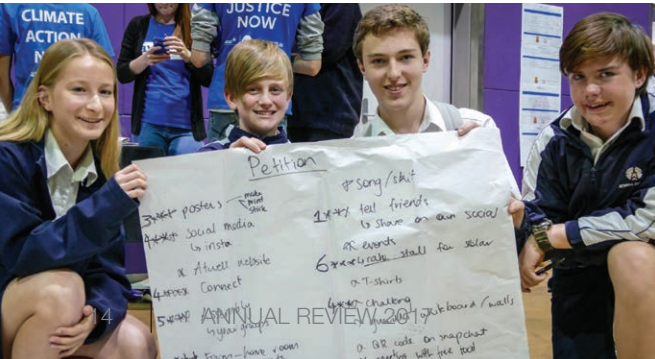 CLIMATE
ACTION
N
JUSTICE
NOW
Petition
3*** posters
make
print
stick
4*** Social media
↳ insta
* Atwell website
4*** Connect
5***
↳ year groups
home room
* song / skit
1*** tell friends
↳ share on own social
* events
6*** cake stall for solar
* T-shirts
4*** chalking
whiteboard / walls
* QR code on snapchat
with free food
14 | ANNUAL REVIEW 2017